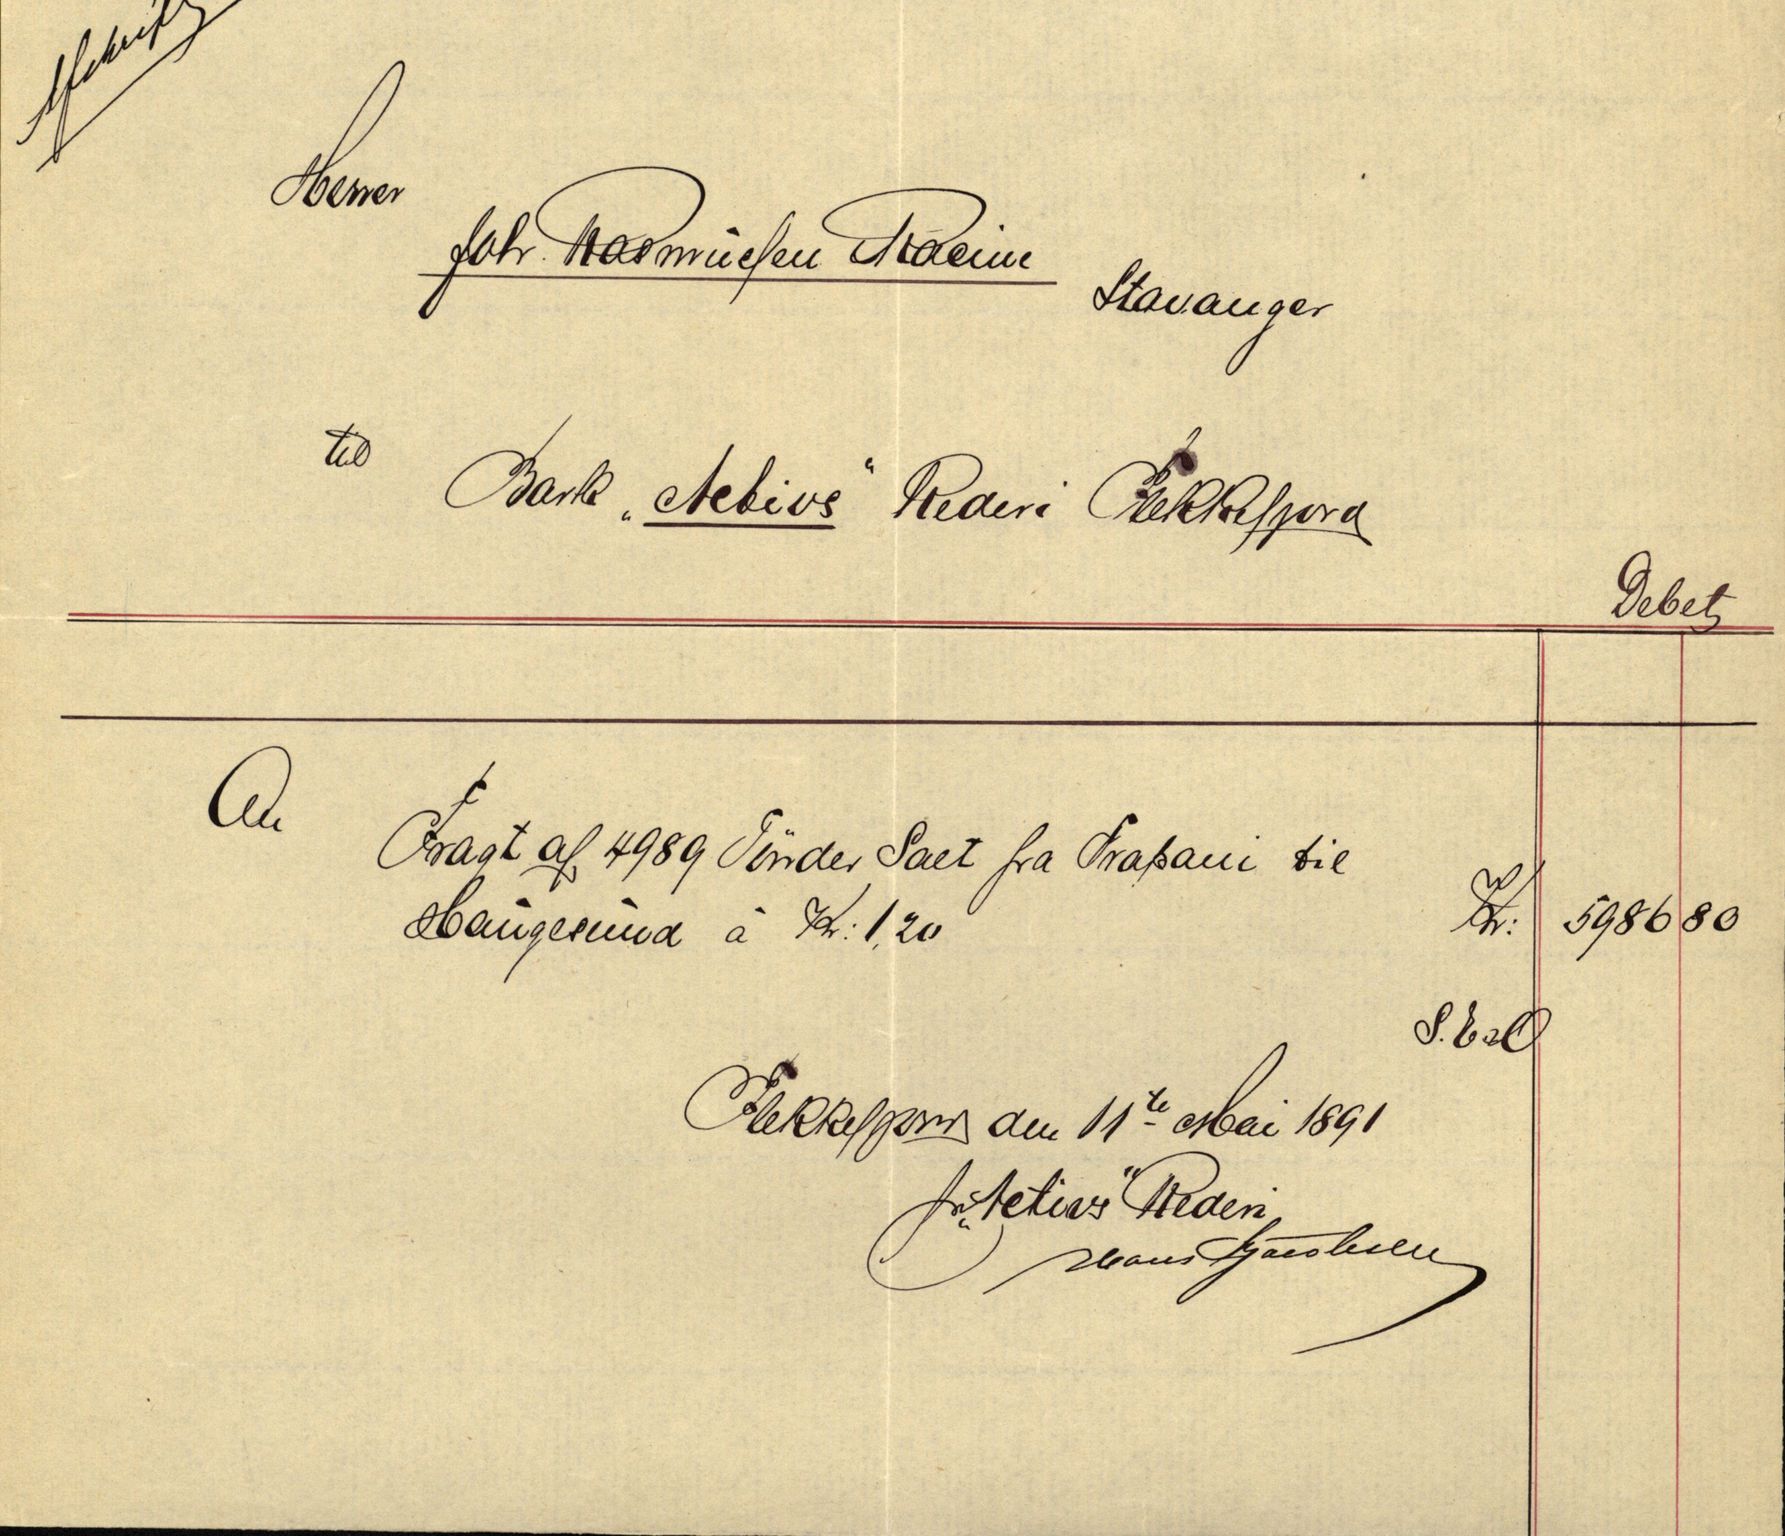 Afskrift
Herrer
Joh. Rasmussen Racine
Stavanger
til
Bark „Aetius“ Rederi Flekkefjord
Debet
An
Fragt af 4989 Tönder Salt fra Trapani til
Haugesund à Kr: 1,20
Kr: 5986 80
S. E & O
Flekkefjord den 11te Mai 1891
for „Aetius“ Rederi
Hans Jacobsen